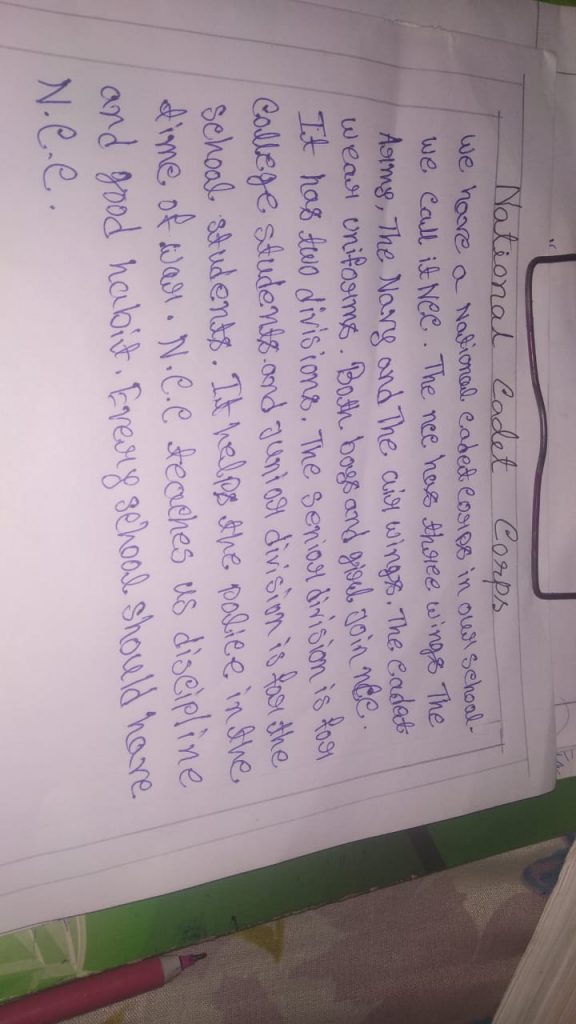 National Cadet Corps
We have a National cadet corps in our school.
we call it NCC. The ncc has three wings The
Army, The Navy and The air wings. The cadet
wear uniforms. Both boys and girl join NCC.
It has two divisions. The senior division is for
college students and junior division is for the
school students. It helps the police in the
time of war. N.C.C teaches us discipline
and good habit. Every school should have
N.C.C.